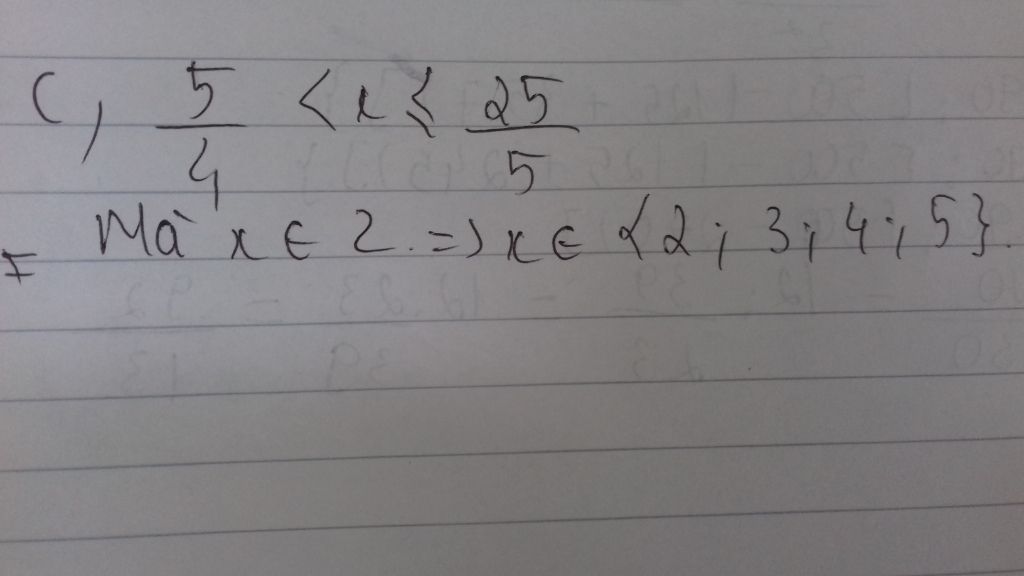 C, 5/4 < x ≤ 25/5
Mà x ∈ Z. => x ∈ {2; 3; 4; 5}.